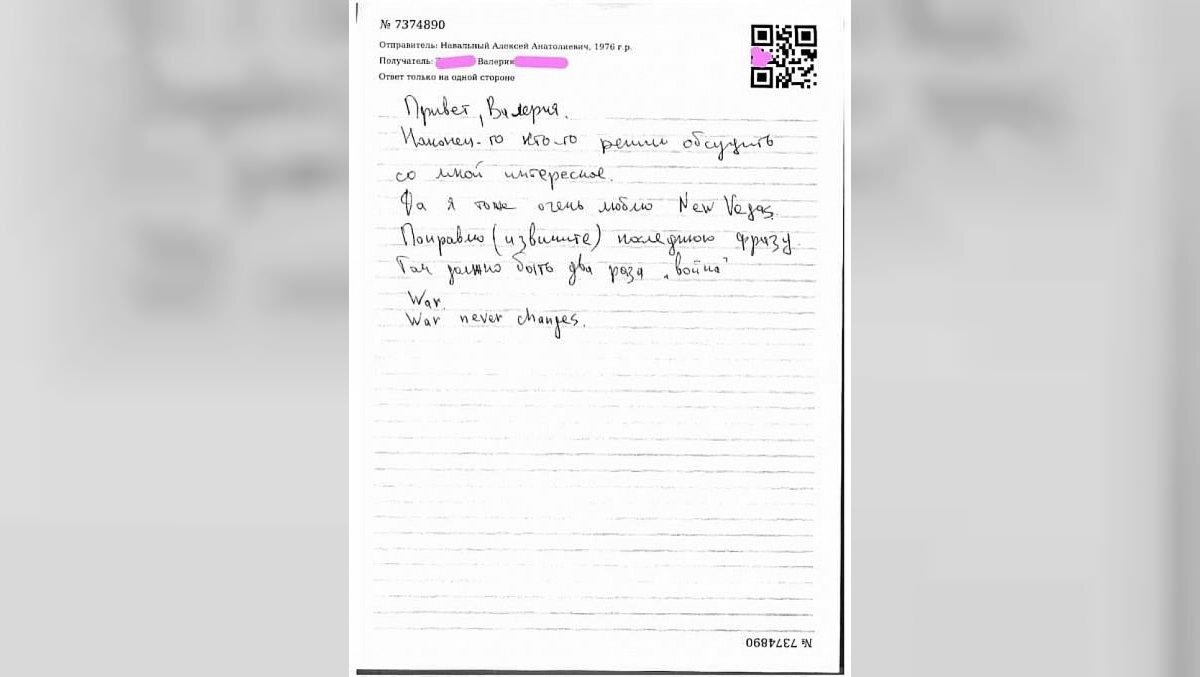 № 7374890
Отправитель: Навальный Алексей Анатолиевич, 1976 г.р.
Получатель: Валерия
Ответ только на одной стороне
Привет, Валерия.
Наконец-то кто-то решил обсудить
со мной интересное.
Да я тоже очень люблю New Vegas.
Поправлю (извините) последнюю фразу.
Там должно быть два раза „война"
War.
War never changes.
№ 7374890